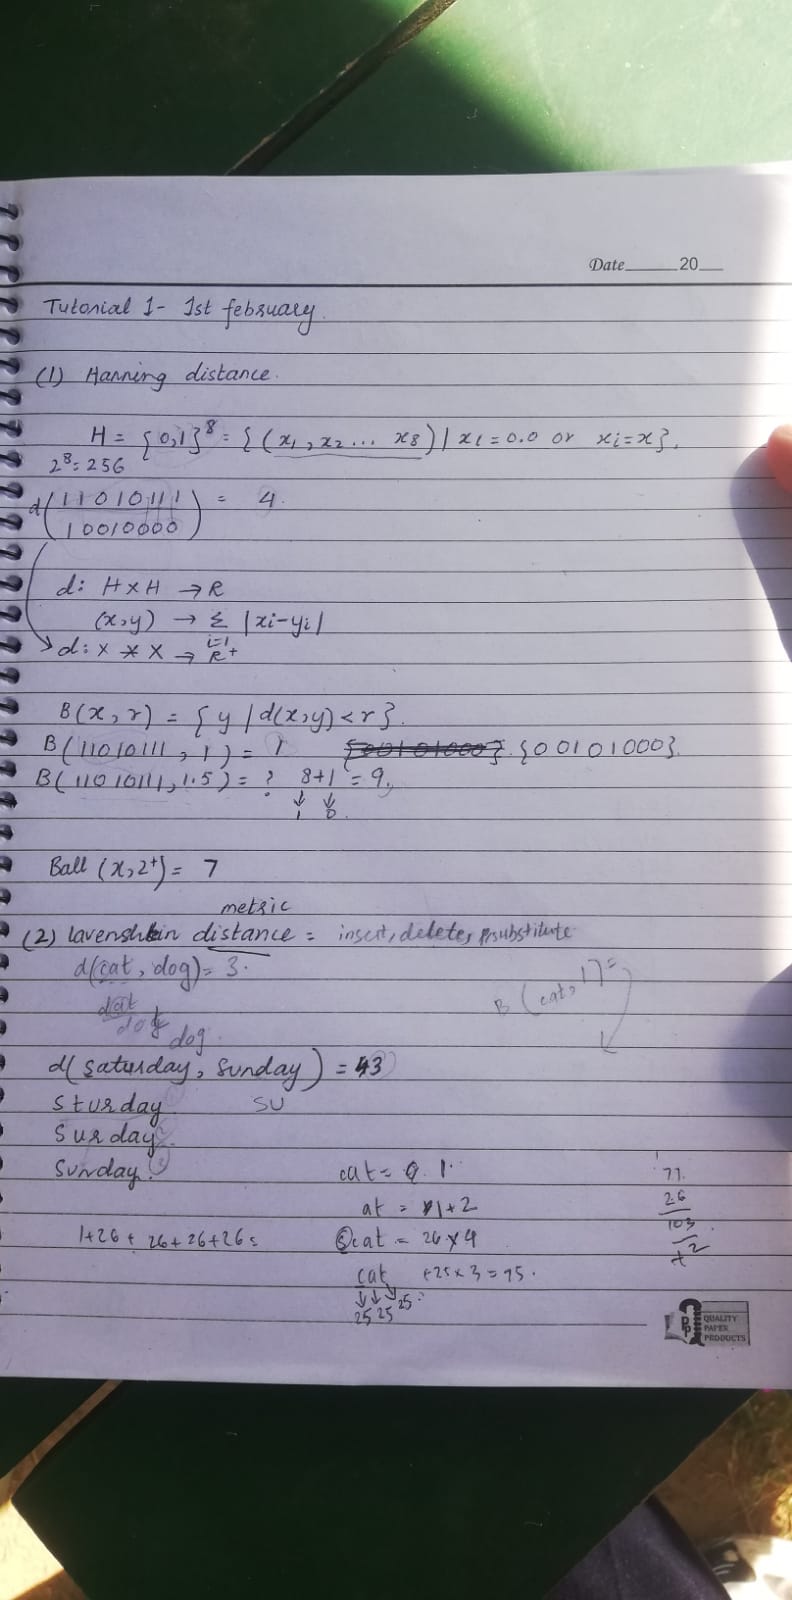 Date______20___
Tutorial 1- 1st february.
(1) Hanning distance.
H = {0,1}⁸ = {(x₁, x₂ ... x₈) | xi = 0.0 or xi = x}.
2⁸ = 256
d(11010111
10010000) = 4.
d: H x H → R
(x,y) → Σ |xi-yi|
i=1
d: X * X → R+
B(x, r) = { y / d(x,y) < r }.
B(11010111, 1) = 1 {00101000}. {00101000}.
B(11010111, 1.5) = ? 8+1 = 9.
↓ ↓
1 0.
Ball (x, 2⁺) = 7
metric
(2) lavenshtein distance = insert, delete, substitute
d(cat, dog) = 3.
B (cat, 1) =
dat
dot
dog
d( saturday, sunday ) = 3
sturday SU
surday
sunday. 3
cat = 1.
77.
at = 1+2
26
1+26+ 26+26+26 =
cat = 26 x 4
103
+2
cat +25 x 3 = 95.
↓ ↓ ↓
25 25 25.
QUALITY
PAPER
PRODUCTS